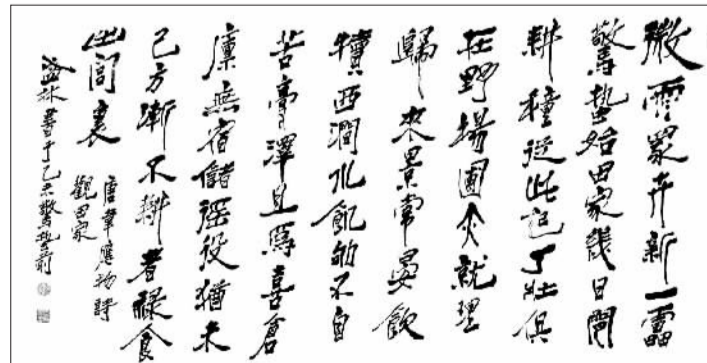 微雨眾卉新一雷
驚蟄始田家幾日閒
耕種從此起丁壯俱
在野場圃亦就理
歸來景常晏飲
犢西澗水飢劬不自
苦膏澤且爲喜倉
廩無宿儲徭役猶未
已方慚不耕者祿食
出閭裏
唐韋應物詩
觀田家
林書于乙未驚蟄前